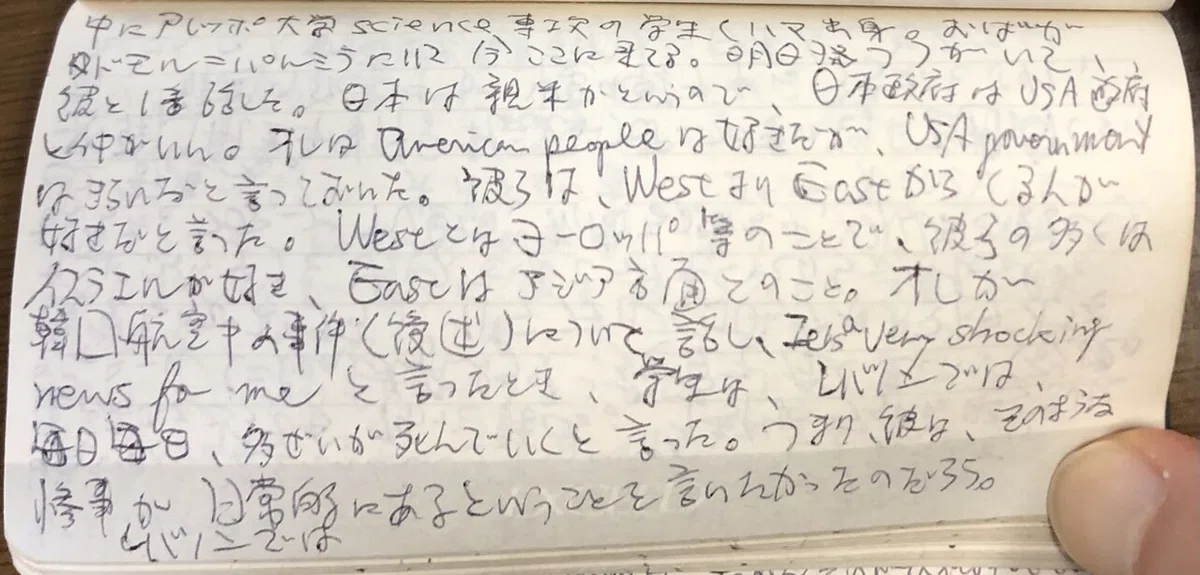 中にアレッポ大学science専攻の学生くハマ出身。おばが
タドモル=パルミラにいて今ここに来てる。明日発つ)がいて、
彼と1番話した。日本は親米かというので、日本政府はUSA政府
と仲がいい。オレはAmerican peopleは好きだが、USA government
はきらいだと言っておいた。彼らは、WestよりEastからくるんが
好きだと言った。Westとはヨーロッパ等のことで、彼らの多くは
イスラエルが好き、Eastはアジア方面とのこと。オレが
韓国航空中の事件(後述)について話し、Its a very shocking
news for meと言ったとき、学生は、レバノンでは、
毎日毎日、多ぜいが死んでいくと言った。つまり、彼は、そのような
惨事が日常的にあるということを言いたかったのだろう。
レバノンでは